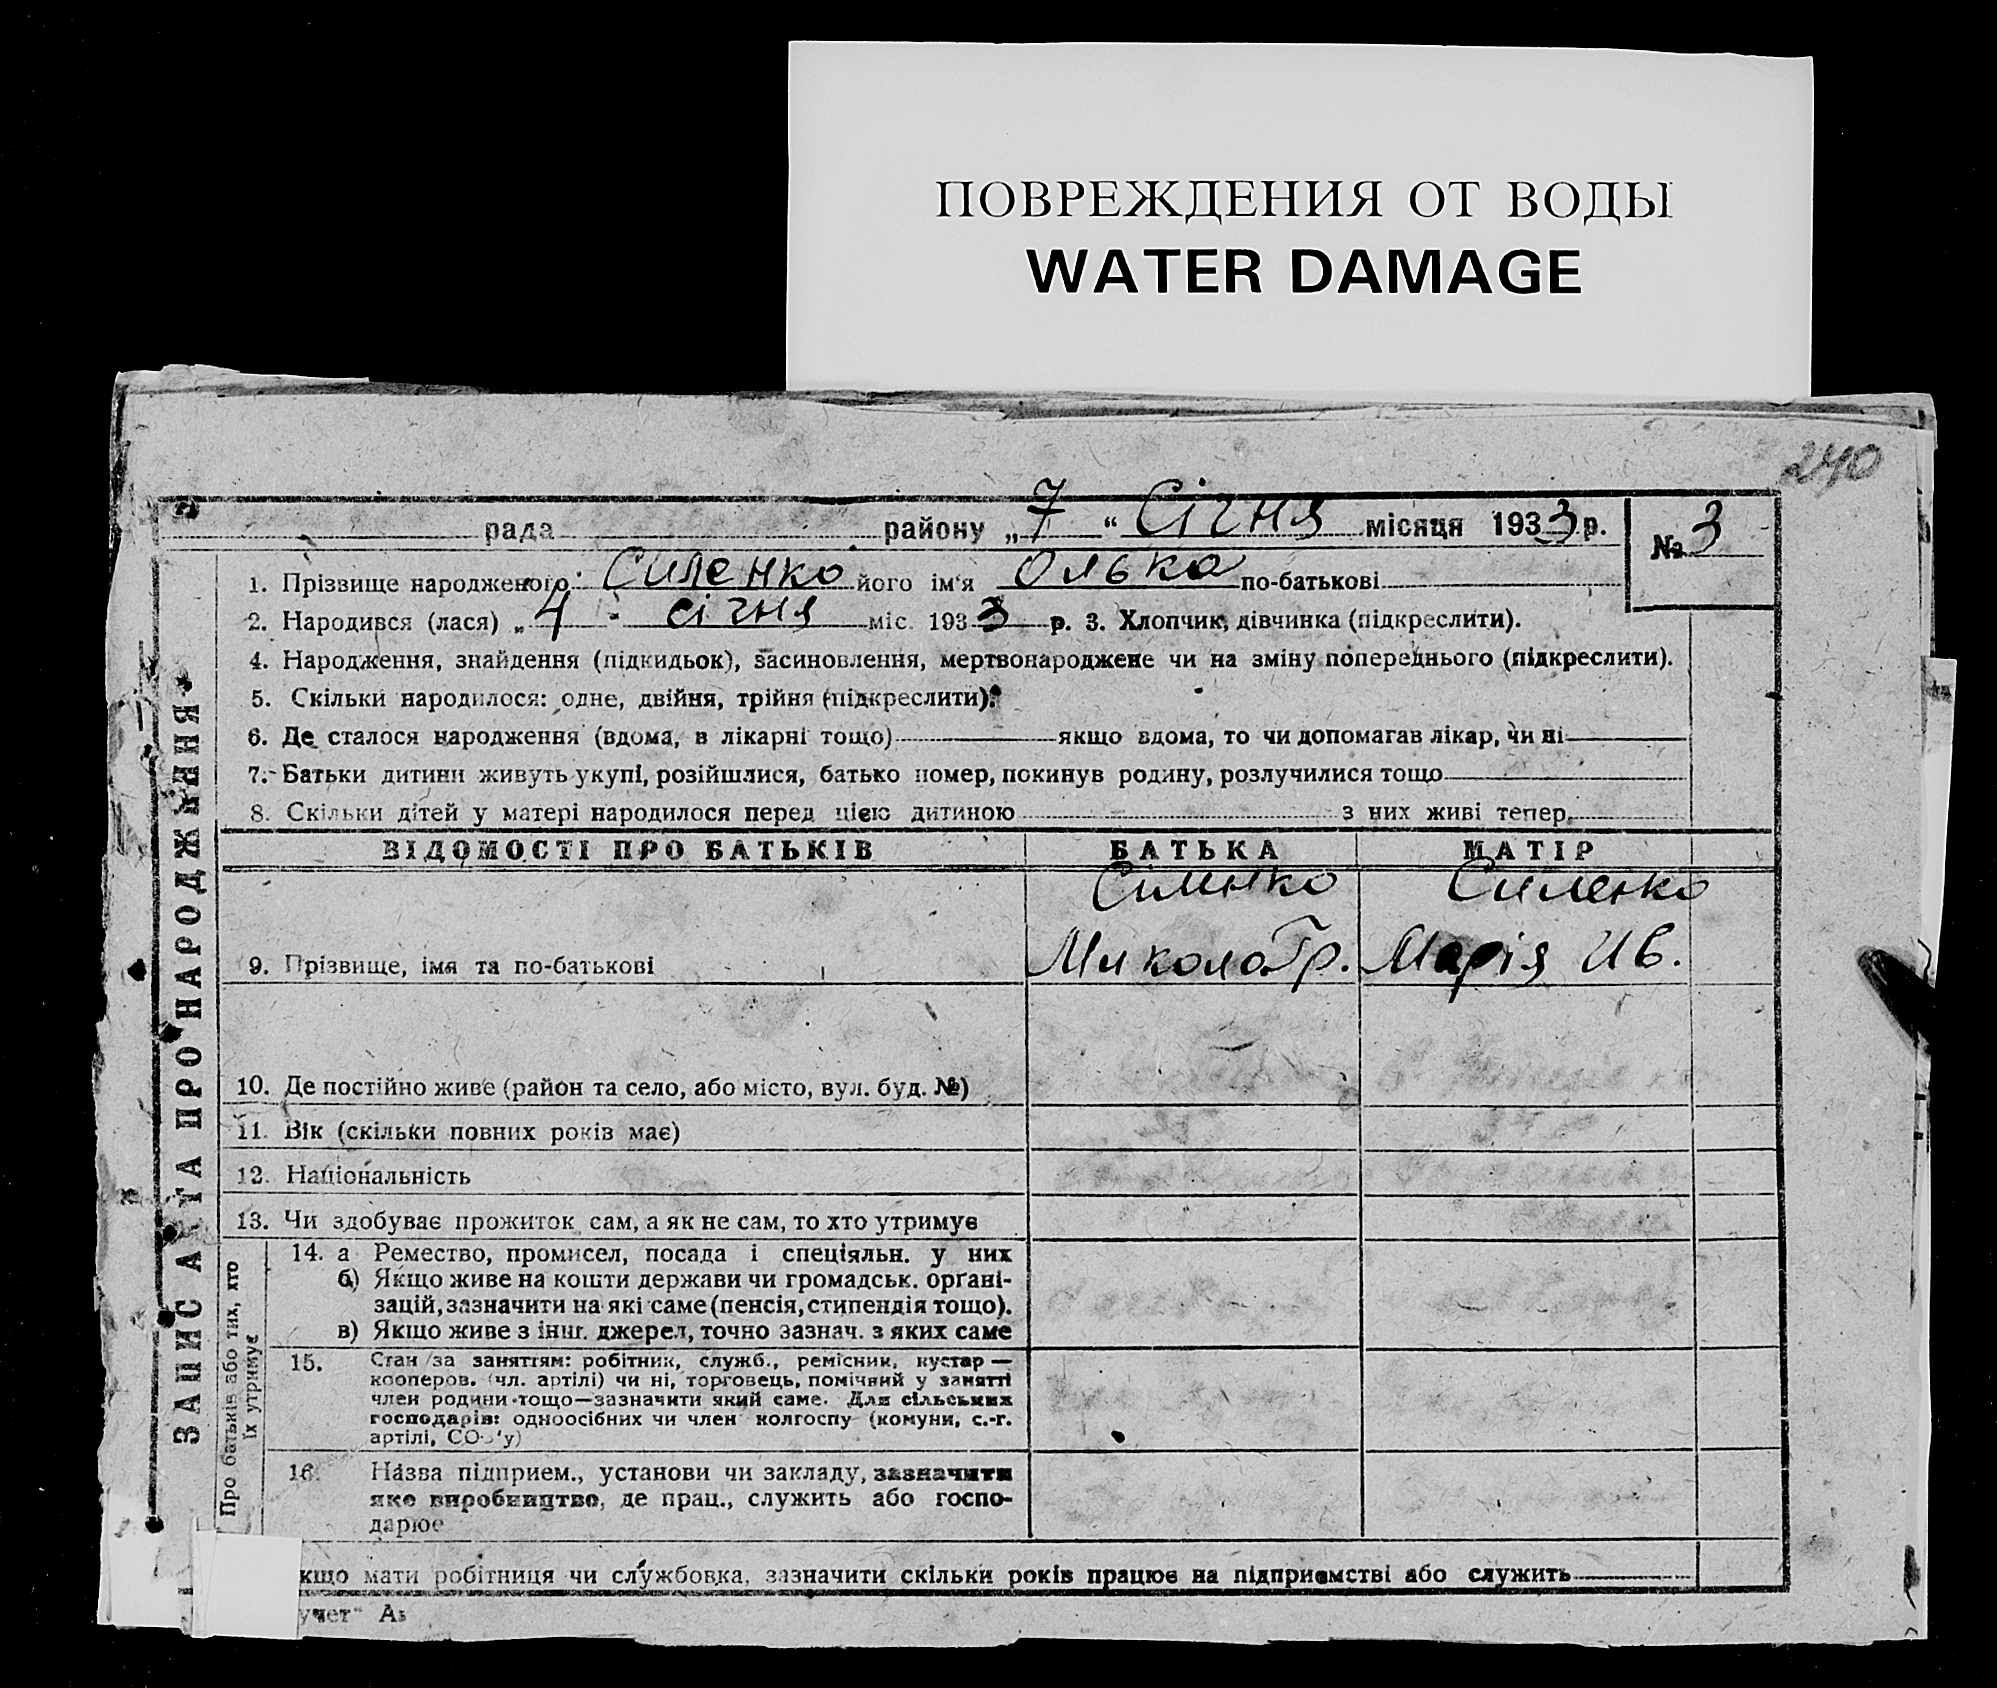 ПОВРЕЖДЕНИЯ ОТ ВОДЫ
WATER DAMAGE
240
рада району „7“ Січня місяця 1933 р. № 3
1. Прізвище народженого: Силенко його ім'я Олька по-батькові
2. Народився (лася) „4" січня міс. 1933 р. 3. Хлопчик, дівчинка (підкреслити).
4. Народження, знайдення (підкидьок), засиновлення, мертвонароджене чи на зміну попереднього (підкреслити).
5. Скільки народилося: одне, двійня, трійня (підкреслити).
6. Де сталося народження (вдома, в лікарні тощо) якщо вдома, то чи допомагав лікар, чи ні
7. Батьки дитини живуть укупі, розійшлися, батько помер, покинув родину, розлучилися тощо
8. Скільки дітей у матері народилося перед цією дитиною з них живі тепер
ВІДОМОСТІ ПРО БАТЬКІВ БАТЬКА МАТІР
Силенко Силенко
9. Прізвище, імя та по-батькові Микола Гр. Марія Ив.
10. Де постійно живе (район та село, або місто, вул. буд. №)
11. Вік (скільки повних років має)
12. Національність
13. Чи здобуває прожиток сам, а як не сам, то хто утримує
14. а Ремество, промисел, посада і спеціяльн. у них
б) Якщо живе на кошти держави чи громадськ. орґані-
зацій, зазначити на які саме (пенсія, стипендія тощо).
в) Якщо живе з інш. джерел, точно зазнач. з яких саме
15. Стан за заняттям: робітник, служб., ремісник, кустар —
кооперов. (чл. артілі) чи ні, торговець, помічний у занятті
член родини тощо—зазначити який саме. Для сільських
господарів: одноосібних чи член колгоспу (комуни, с.-г.
артілі, СО у)
16. Назва підприєм., установи чи закладу, зазначити
яке виробництво, де прац., служить або госпо-
дарює
кщо мати робітниця чи службовка, зазначити скільки років працює на підприємстві або служить
учет"
ЗАПИС АКТА ПРО НАРОДЖЕННЯ
Про батьків або тих, хто
їх утримує